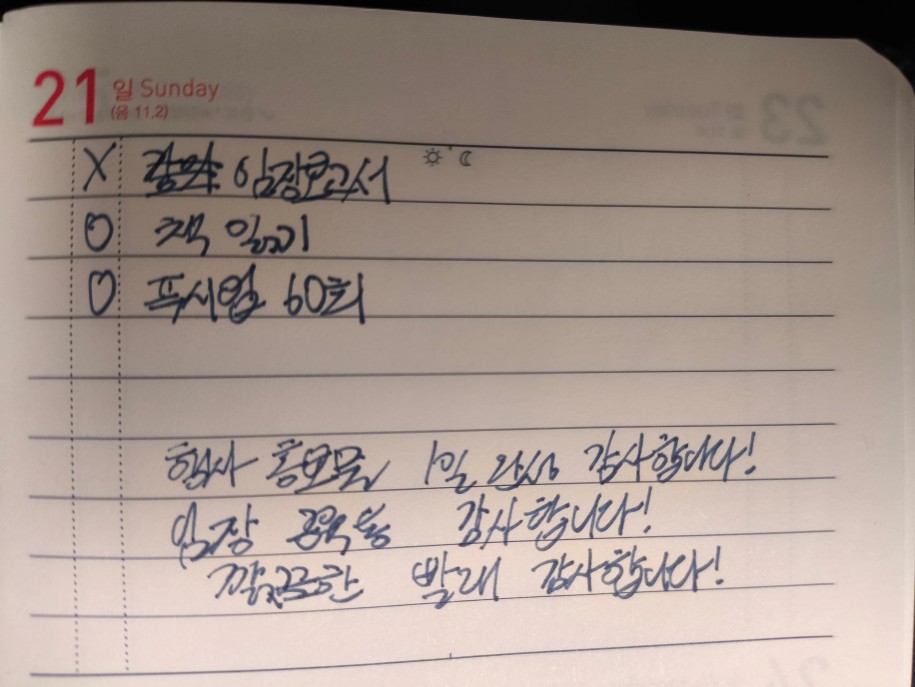 21 일 Sunday
(음 11.2)
X 임장보고서
O 책 읽기
O 푸시업 60회
행사 홍보물 1일 완성 감사합니다!
임장 감사합니다!
깔끔한 빨래 감사합니다!
23